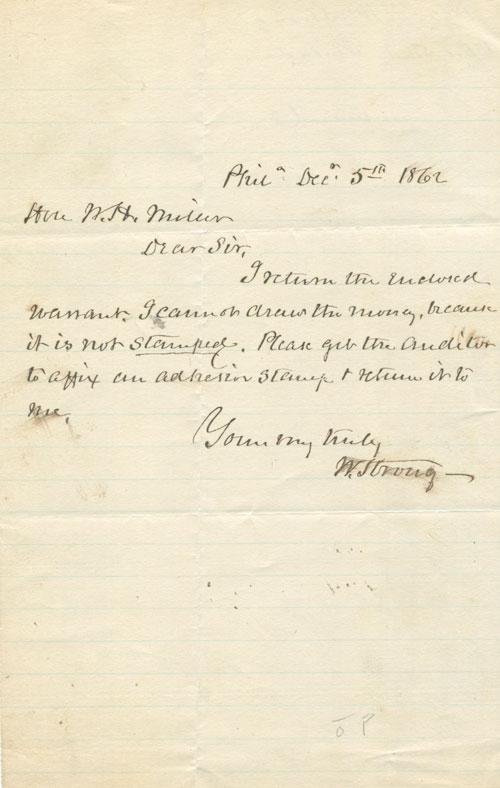 Phila Decr 5th 1862
Hon W. H. Miller
Dear Sir,
I return the enclosed
warrant. I cannot draw the money, because
it is not stamped. Please get the auditor
to affix an adhesive stamp & return it to
me.
Yours very truly
W. Strong